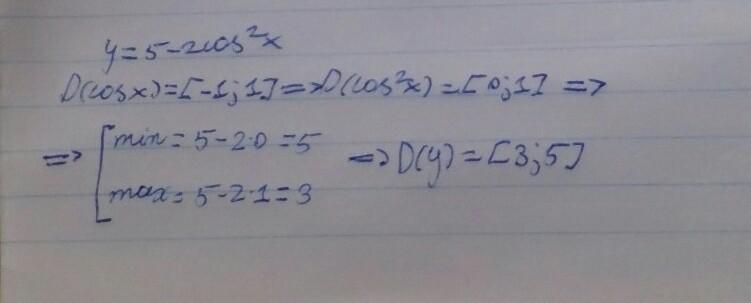 y=5-2cos²x
D(cosx)=[-1;1]=>D(cos²x)=[0;1] =>
=> [min=5-2·0=5
max=5-2·1=3 => D(y)=[3;5]